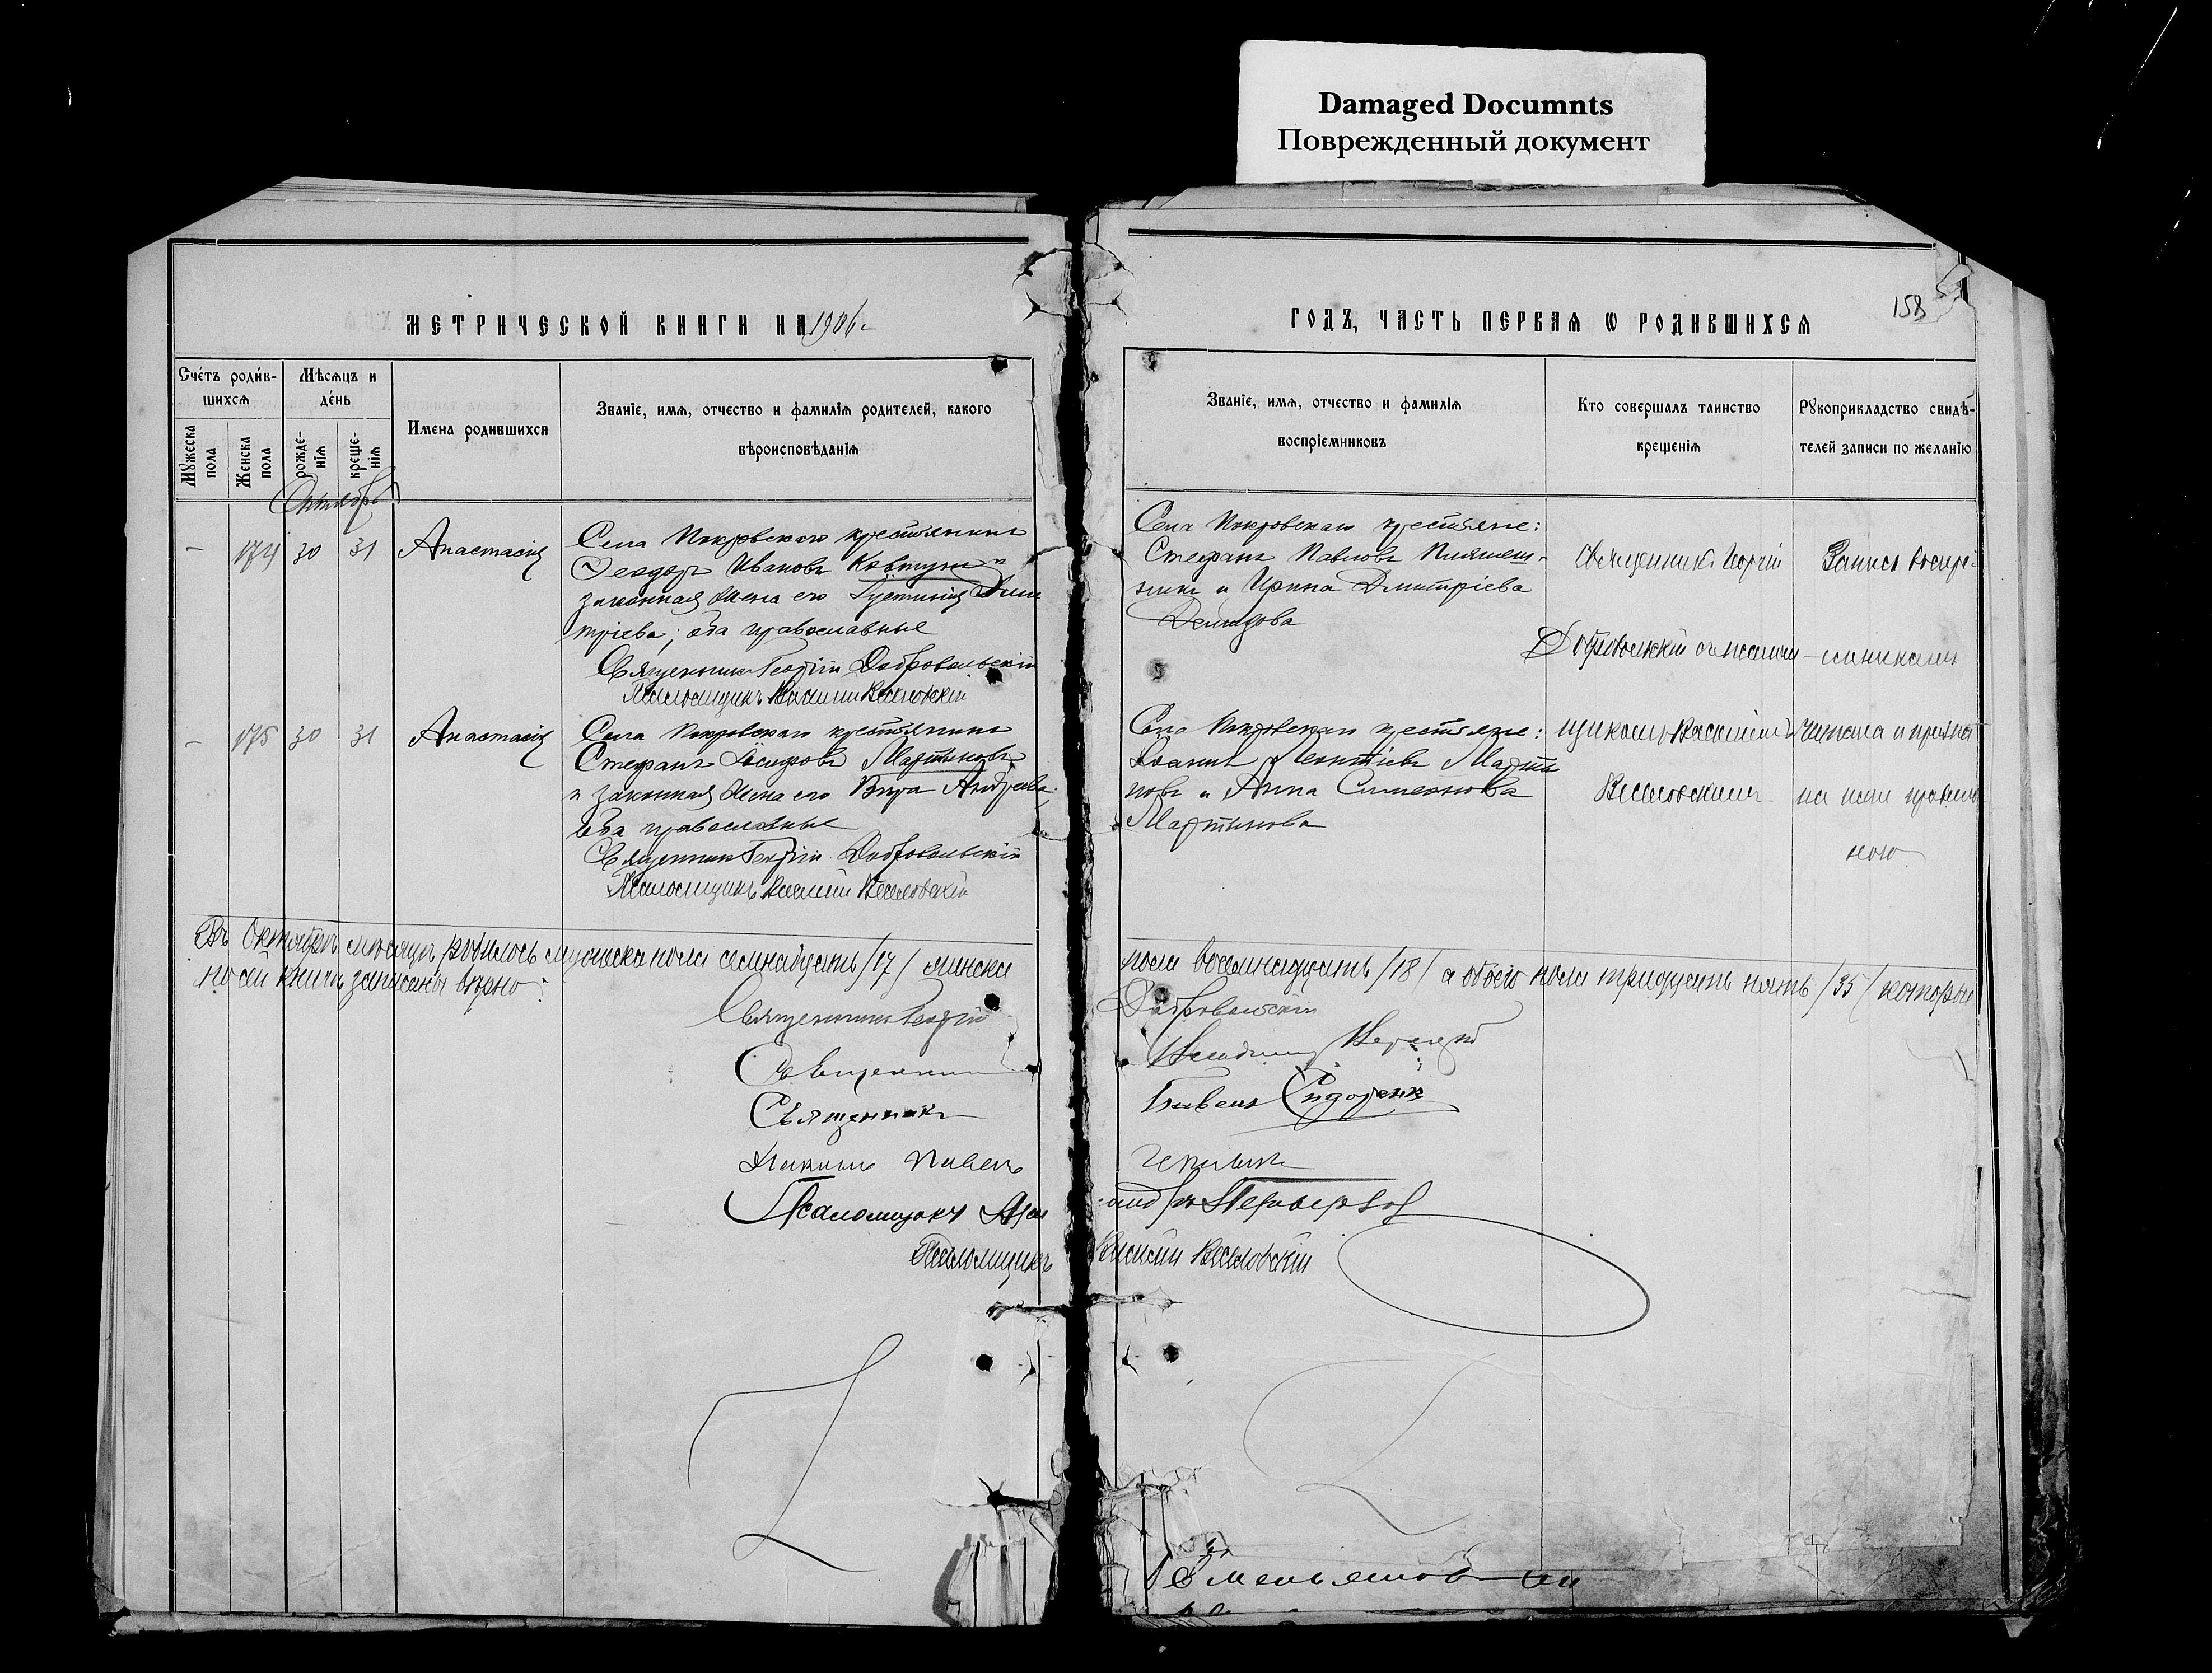 Damaged Documnts
Поврежденный документ
МЕТРИЧЕСКОЙ КНИГИ НА 1906 г
ГОДЪ, ЧАСТЬ ПЕРВАЯ Ѡ РОДИВШИХСЯ
158
Счетъ родив-
шихся
Мѣсяцъ и
день
Мужеска
пола
Женска
пола
рожде-
нія
креще-
нія
Имена родившихся
Званіе, имя, отчество и фамилія родителей, какого
вѣроисповѣданія
Званіе, имя, отчество и фамилія
воспріемниковъ
Кто совершалъ таинство
крещенія
Рукоприкладство свидѣ-
телей записи по желанію
Октябрь
– 174 30 31 Анастасія
Села Покровскаго крестьянинъ
Ѳеодоръ Ивановъ Ковтунъ и
законная жена его Іустинія Дими
тріева; оба православные
Священникъ Георгій Добровольскій
Псаломщикъ Василій Веселовскій
Села Покровскаго крестьяне:
Стефанъ Павловъ
и Ирина Димитріева
Демидова
Священникъ Георгій
Добровольскій съ псалом
щикомъ Василіемъ
Веселовскимъ
Запись воспрі
емниками
читана и призна
на ими правиль
ною
– 175 30 31 Анастасія
Села Покровскаго крестьянинъ
Стефанъ Мартыновъ
и законная жена его Вѣра Андреева;
оба православные
Священникъ Георгій Добровольскій
Псаломщикъ Василій Веселовскій
Села Покровскаго крестьяне:
Іоаннъ Леонтіевъ Марты
новъ и Анна Симеонова
Мартынова
Въ Октябрѣ мѣсяцѣ родилось мужеска пола семнадцать /17/ женска пола восемнадцать /18/ а обоего пола тридцать пять /35/ которые
по сей книгѣ записаны вѣрно:
Священникъ Георгій Добровольскій
Священникъ
Священникъ Сидоренко
Павелъ
Псаломщикъ
Псаломщикъ Василій Веселовскій